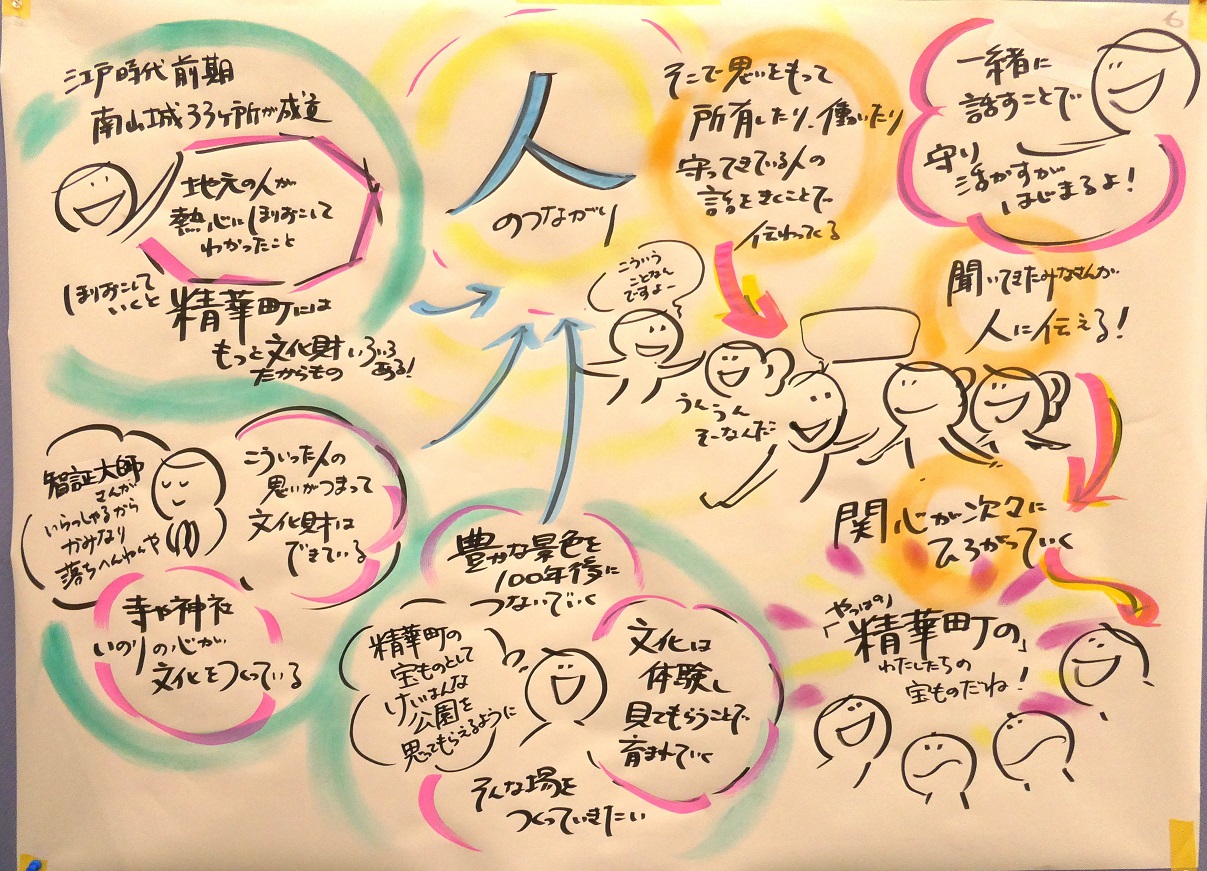 江戸時代前期
南山城33ヶ所が成立
地元の人が
熱心にほりおこして
わかったこと
ほりおこして
いくと
精華町には
もっと文化財いろいろ
たからもの
ある!
智証大師
さんが
いらっしゃるから
かみなり
落ちへんねんや
こういった人の
思いがつまって
文化財は
できている
寺や神社
いのりの心が
文化をつくっている
人
のつながり
豊かな景色を
100年後に
つないでいく
精華町の
宝ものとして
けいはんな
公園を
思ってもらえるように
文化は
体験し
見てもらうことで
育まれていく
そんな場を
つくっていきたい
そこで思いをもって
所有したり、働いたり
守ってきている人の
話をきくことで
伝わってくる
こういう
ことなん
ですよー
うんうん
そーなんだ
一緒に
話すことで
守り
活かすが
はじまるよ!
聞いてきたみなさんが
人に伝える!
関心が次々に
ひろがっていく
「やっぱり
精華町の」
わたしたちの
宝ものだね!
6